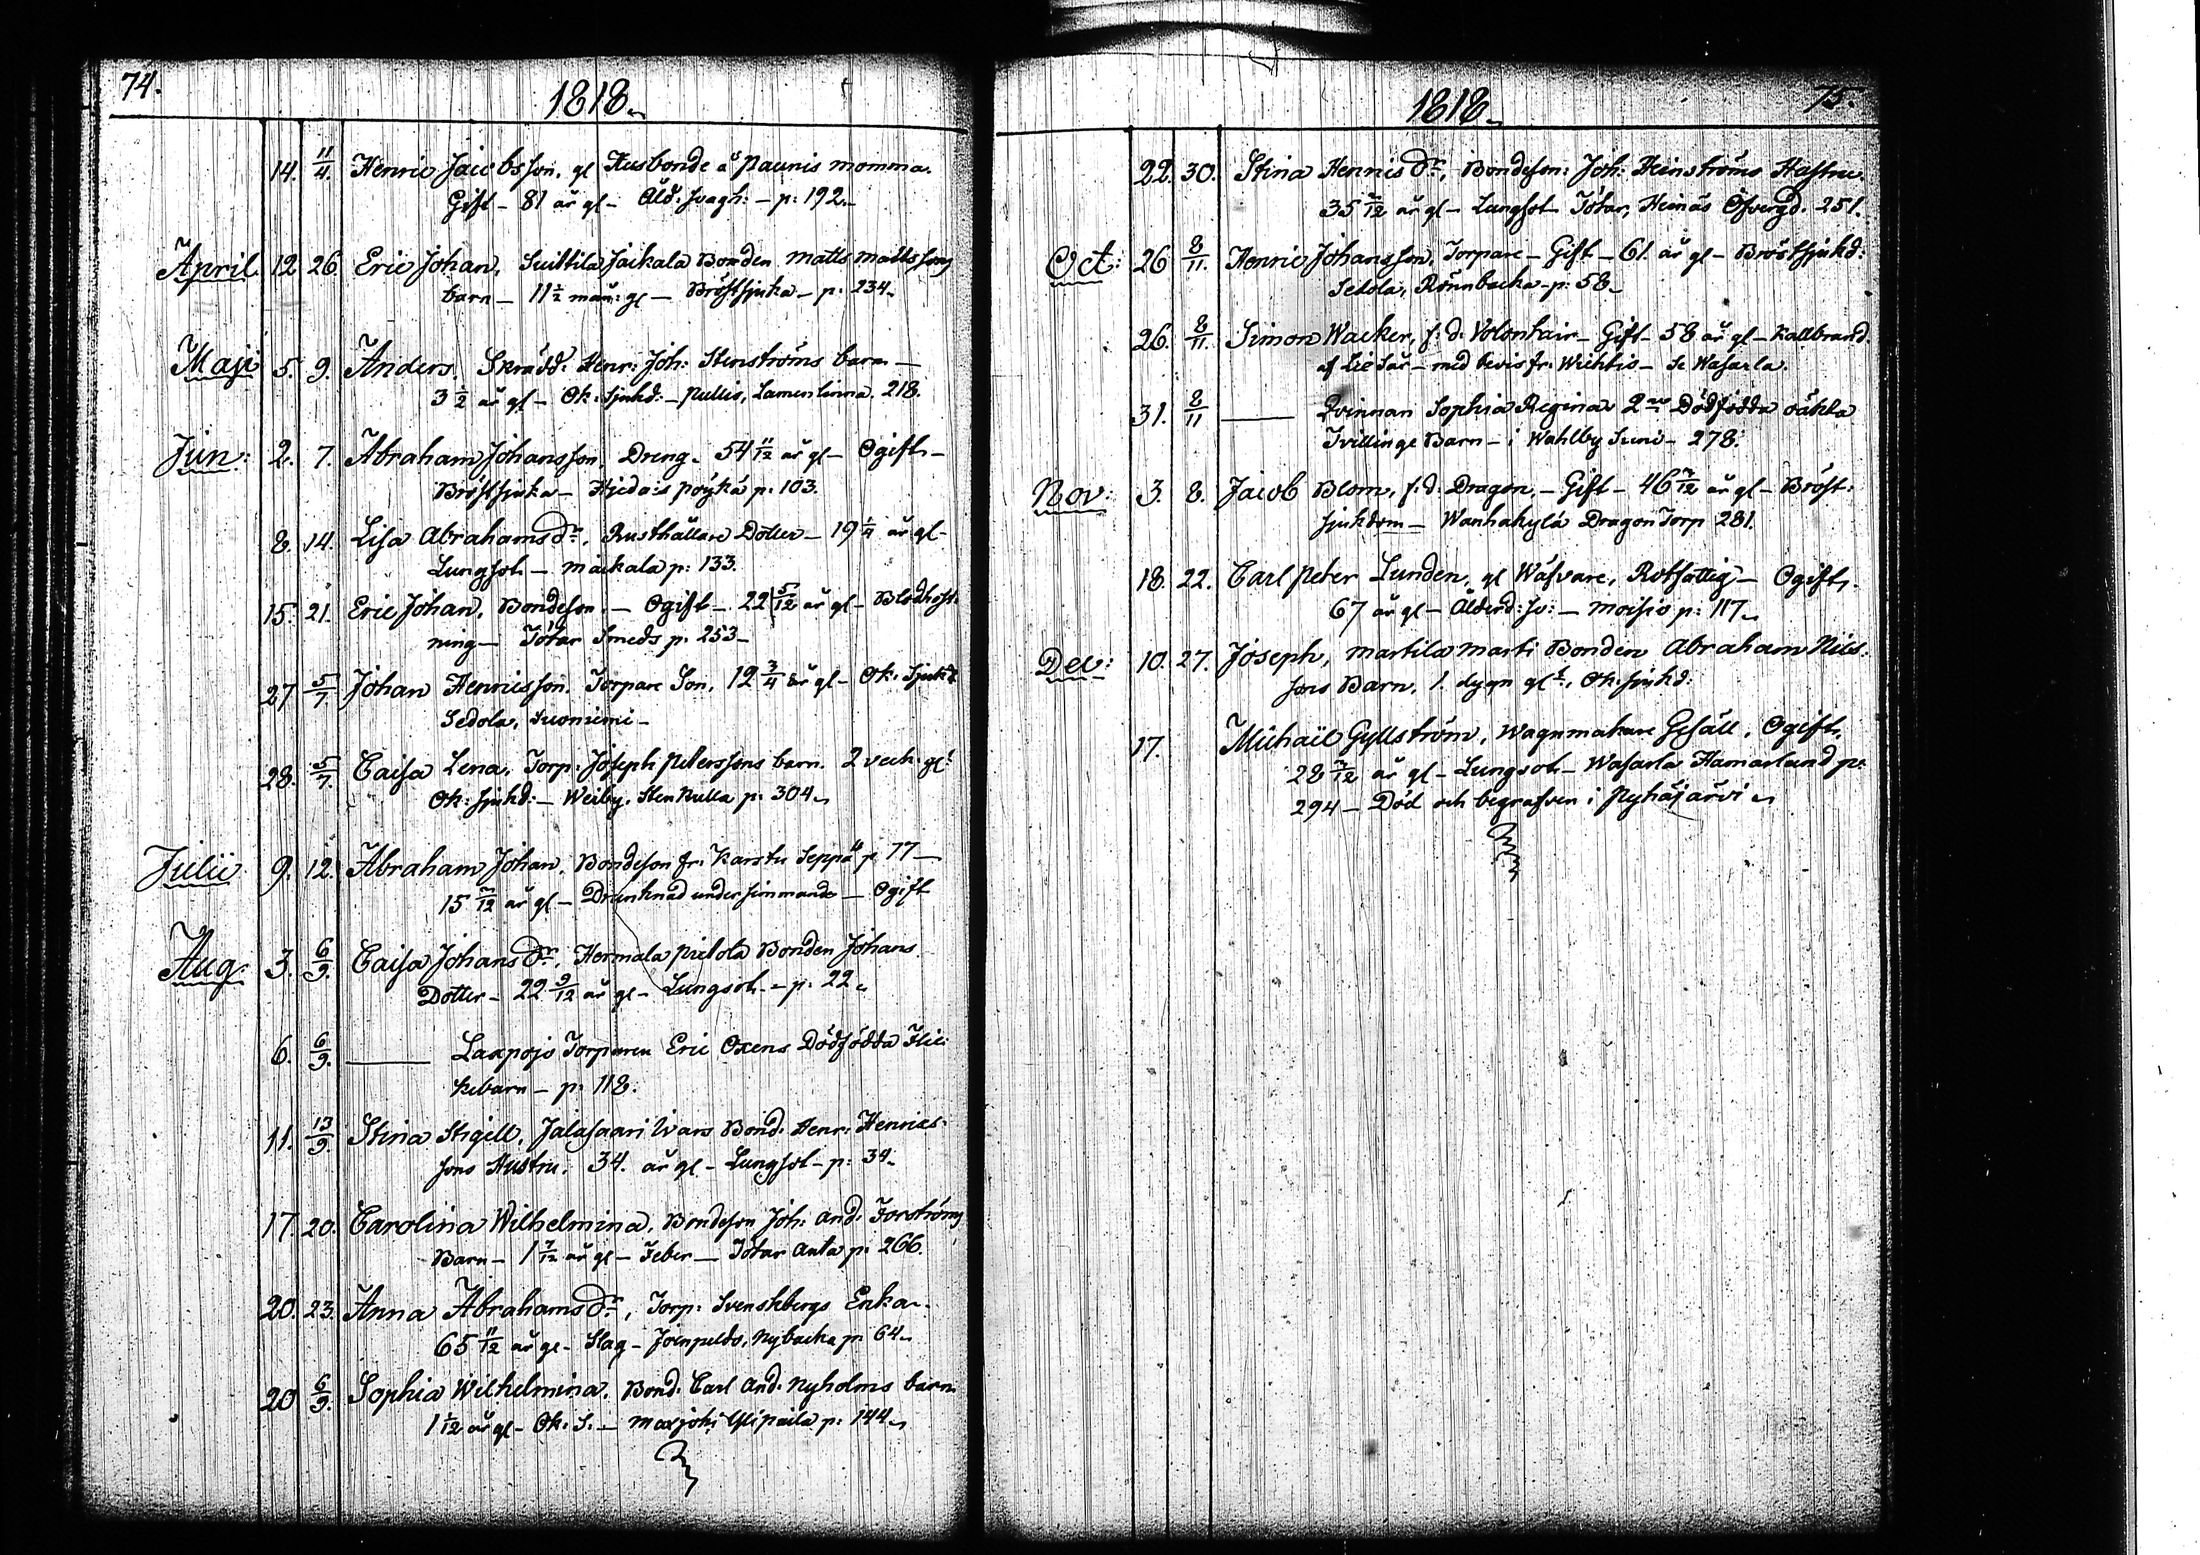 74.
1818.
14. 11/4. Henric Jacobsson, gl Husbonde å Paunis momma.
Gift - 81 år gl - Åld: svagh: - p: 192.
April 12 26 Eric Johan, Suittila Jaikala Bonden matts mattssons
barn - 11 1/2 mån: gl - Bröstsjuka - p: 234.
Maji 5. 9. Anders, Skrädd: Henr: Joh: Stenströms barn -
3 1/2 år gl - Ok: sjukd: - Pullis, Lamenlinna. 218.
Jun: 2. 7. Abraham Johansson, Dreng. 54 11/12 år gl - Ogift -
Bröstsjuka - p: 103.
8. 14. Lisa Abrahams Dr, Rusthållare Dotter - 19 1/4 år gl -
Lungsot - maikala p: 133.
15. 21. Eric Johan, Bondeson. - Ogift - 22 5/12 år gl - Blodhost:
ning - Jötar Smeds p. 253 -
27 5/7. Johan Henricsson, Torpare Son, 12 3/4 år gl - Ok: Sjukd
Sedola, Suoniemi -
28. 5/7. Caisa Lena, Torp: Joseph Peterssons barn. 2 veck. gl:
Ok: sjukd: - Weiby, Stenkulla p: 304.
Julii 9. 12. Abraham Johan, Bondeson fr: Karstu Seppä p 77 -
15 år gl - Drunknad under simmande - Ogift
Aug. 3. 6/9. Caisa Johans Dr, Hermala Pietola Bonden Johans
Dotter - 22 9/12 år gl - Lungsot - p: 22.
6. 6/9. Laxpojo Torparen Eric Oxens Dödfödda Flic:
kebarn - p: 118.
11. 13/9. Stina Stigell, Jalasaari Wars Bond: Henr: Henrics:
sons Hustru. 34. år gl - Lungsot - p: 34.
17. 20. Carolina Wilhelmina, Bondeson Joh: And: Forströms
Barn - 1 7/12 år gl - Feber - Jotar Anta p: 266.
20. 23. Anna Abrahams Dr, Torp: Svenskbergs Enka.
65 11/12 år gl - Slag - Joenpeldo, Nybacka p: 64.
20 6/9. Sophia Wilhelmina, Bond: Carl And: Nyholms barn.
1 1/12 år gl - Ok: S. - Maxjoki p: 144.
75.
1818
22. 30. Stina Henrics Dr, Bondeson: Joh: Heinströms Hustru.
35 år gl - Lungsot Jötar, Heinäs Öfvergd. 251.
Oct: 26 8/11. Henric Johansson, Torpare - Gift - 61. år gl - Bröstsjukd:
Setola, Rönnbacka - p: 58 -
26. 8/11. Simon Wacker, f: d: Volontair - Gift - 58 år gl - Kallbrand.
af Lie Sår - med bevis fr: Wichtis - Se Wasarla.
31. 8/11 Qvinnan Sophia Reginas 2ne Dödfödda oäkta
Tvillinge Barn - i Wahlby Suni - 278.
Nov: 3. 8. Jacob Blom, f: d: Dragon, - Gift - 46 år gl - Bröst:
sjukdom - Wanhakylä Dragon Torp 281.
18. 22. Carl Peter Lunden, gl Wäfvare, Rotfattig - Ogift.
67 år gl - Ålderd: sv: - Moisio p: 117.
Dec: 10. 27. Joseph, Martila Marti Bonden Abraham Nils:
sons Barn, 1. dygn gl, Ok: sjukd:
17. Michaël Gyllström, Wagnmakare Gesäll, Ogift,
28 år gl - Lungsot - Wasarla Hamarland p:
294 - Död och begrafven i Pyhäjärvi